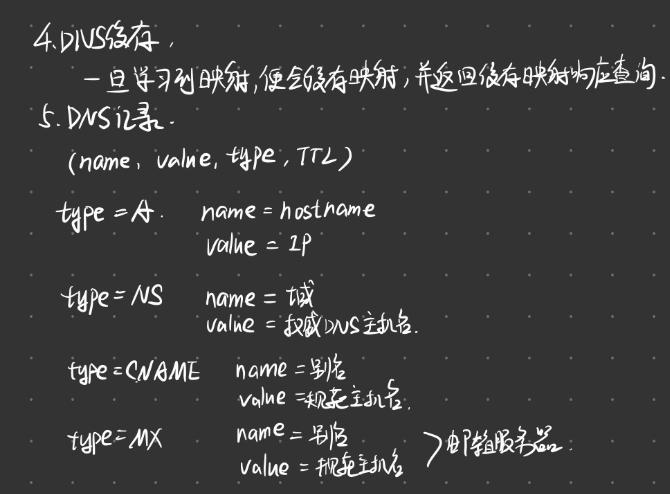 4.DNS缓存.
一旦学习到映射,便会缓存映射,并返回缓存映射响应查询.
5.DNS记录.
(name, value, type, TTL)
type=A. name=hostname
value=IP
type=NS name=域
value=权威DNS主机名.
type=CNAME name=别名
value=规范主机名.
type=MX name=别名
value=规范主机名 >邮箱服务器.